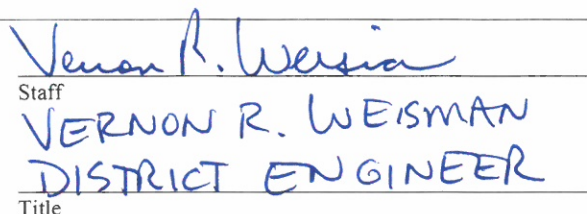 Vernon R. Weisman
Staff
VERNON R. WEISMAN
DISTRICT ENGINEER
Title